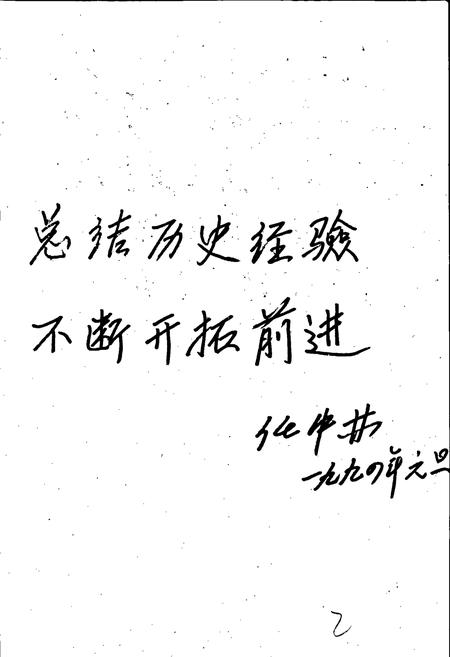 总结历史经验
不断开拓前进
任中林
一九九四年元旦
2